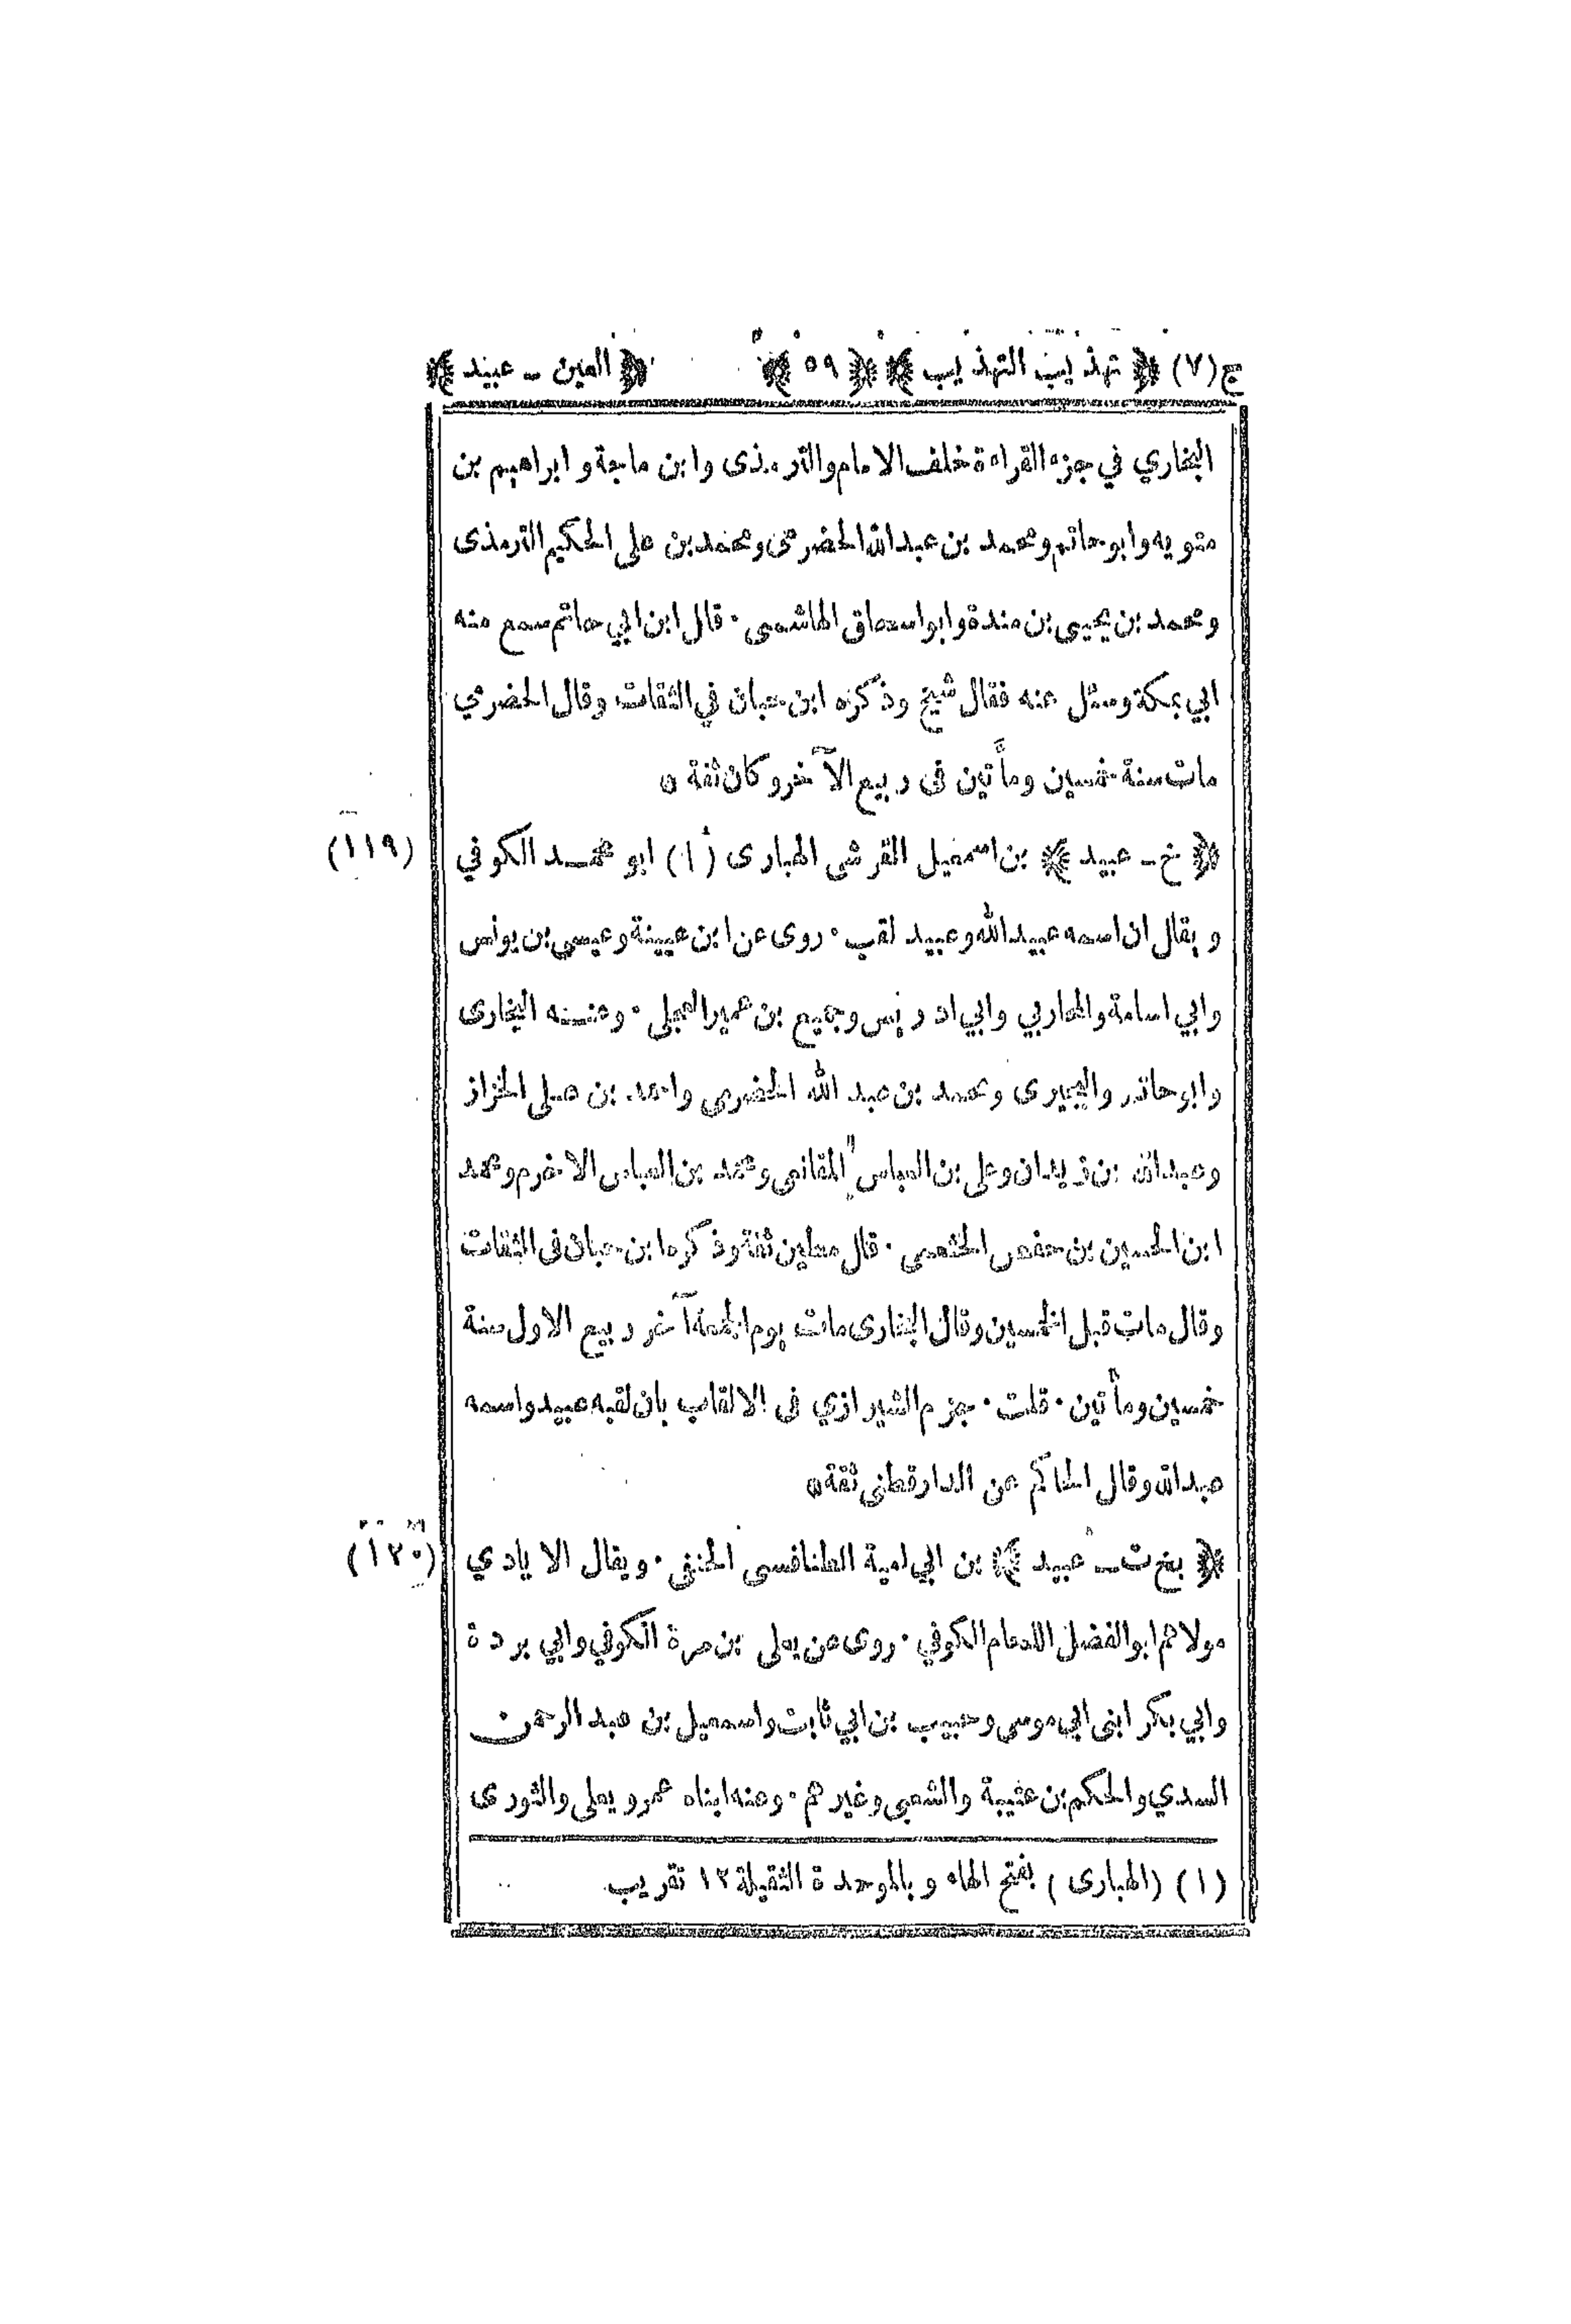 ج(٧) ﴿ تهذيب التهذيب ﴾ ﴿ ٥٩ ﴾ ﴿ العين ـ عبيد ﴾
البخاري في جزء القراءة خلف الامام والترمذى وابن ماجة وابراهيم بن
متويه وابو حاتم ومحمد بن عبدالله الحضرمى ومحمد بن على الحكيم الترمذى
ومحمد بن يحيى بن مندة وابو اسحاق الهاشمى ٠ قال ابن ابي حاتم سمع منه
ابي بمكة وسئل عنه فقال شيخ وذكره ابن حبان في الثقات وقال الحضرمي
مات سنة خمسين ومأتين فى ربيع الآخر وكان ثقة ٥
(١١٩)
﴿ خ ـ عبيد ﴾ بن اسمعيل القرشى الهبارى (١) ابو محمد الكوفي
ويقال ان اسمه عبيدالله وعبيد لقب ٠ روى عن ابن عيينة وعيسى بن يونس
وابي اسامة والمحاربي وابي ادريس وجميع بن عمير العجلى ٠ وعنه البخارى
وابو حاتم والبجيرى ومحمد بن عبد الله الحضرمي واحمد بن على الخزاز
وعبدالله بن زيدان وعلى بن العباس المقانعى ومحمد بن العباس الاخرم ومحمد
ابن الحسين بن حفص الخثعمى ٠ قال مطين ثقة وذكره ابن حبان فى الثقات
وقال مات قبل الخمسين وقال البخارى مات يوم الجمعه آخر ربيع الاول سنة
خمسين ومأتين ٠ قلت ٠ جزم الشيرازي فى الالقاب بان لقبه عبيد واسمه
عبدالله وقال الحاكم عن الدارقطنى ثقة ٥
(١٢٠)
﴿ بخ ت ـ عبيد ﴾ بن ابي امية الطنافسى الحنفى ٠ ويقال الايادي
مولاهم ابو الفضل اللحام الكوفي ٠ روى عن يعلى بن مرة الكوفي وابي بردة
وابي بكر ابنى ابي موسى وحبيب بن ابي ثابت واسمعيل بن عبد الرحمن
السدي والحكم بن عتيبة والشعبى وغيرهم ٠ وعنه ابناه عمر و يعلى والثورى
(١) (الهبارى) بفتح الهاء وبالموحدة الثقيلة ١٢ تقريب